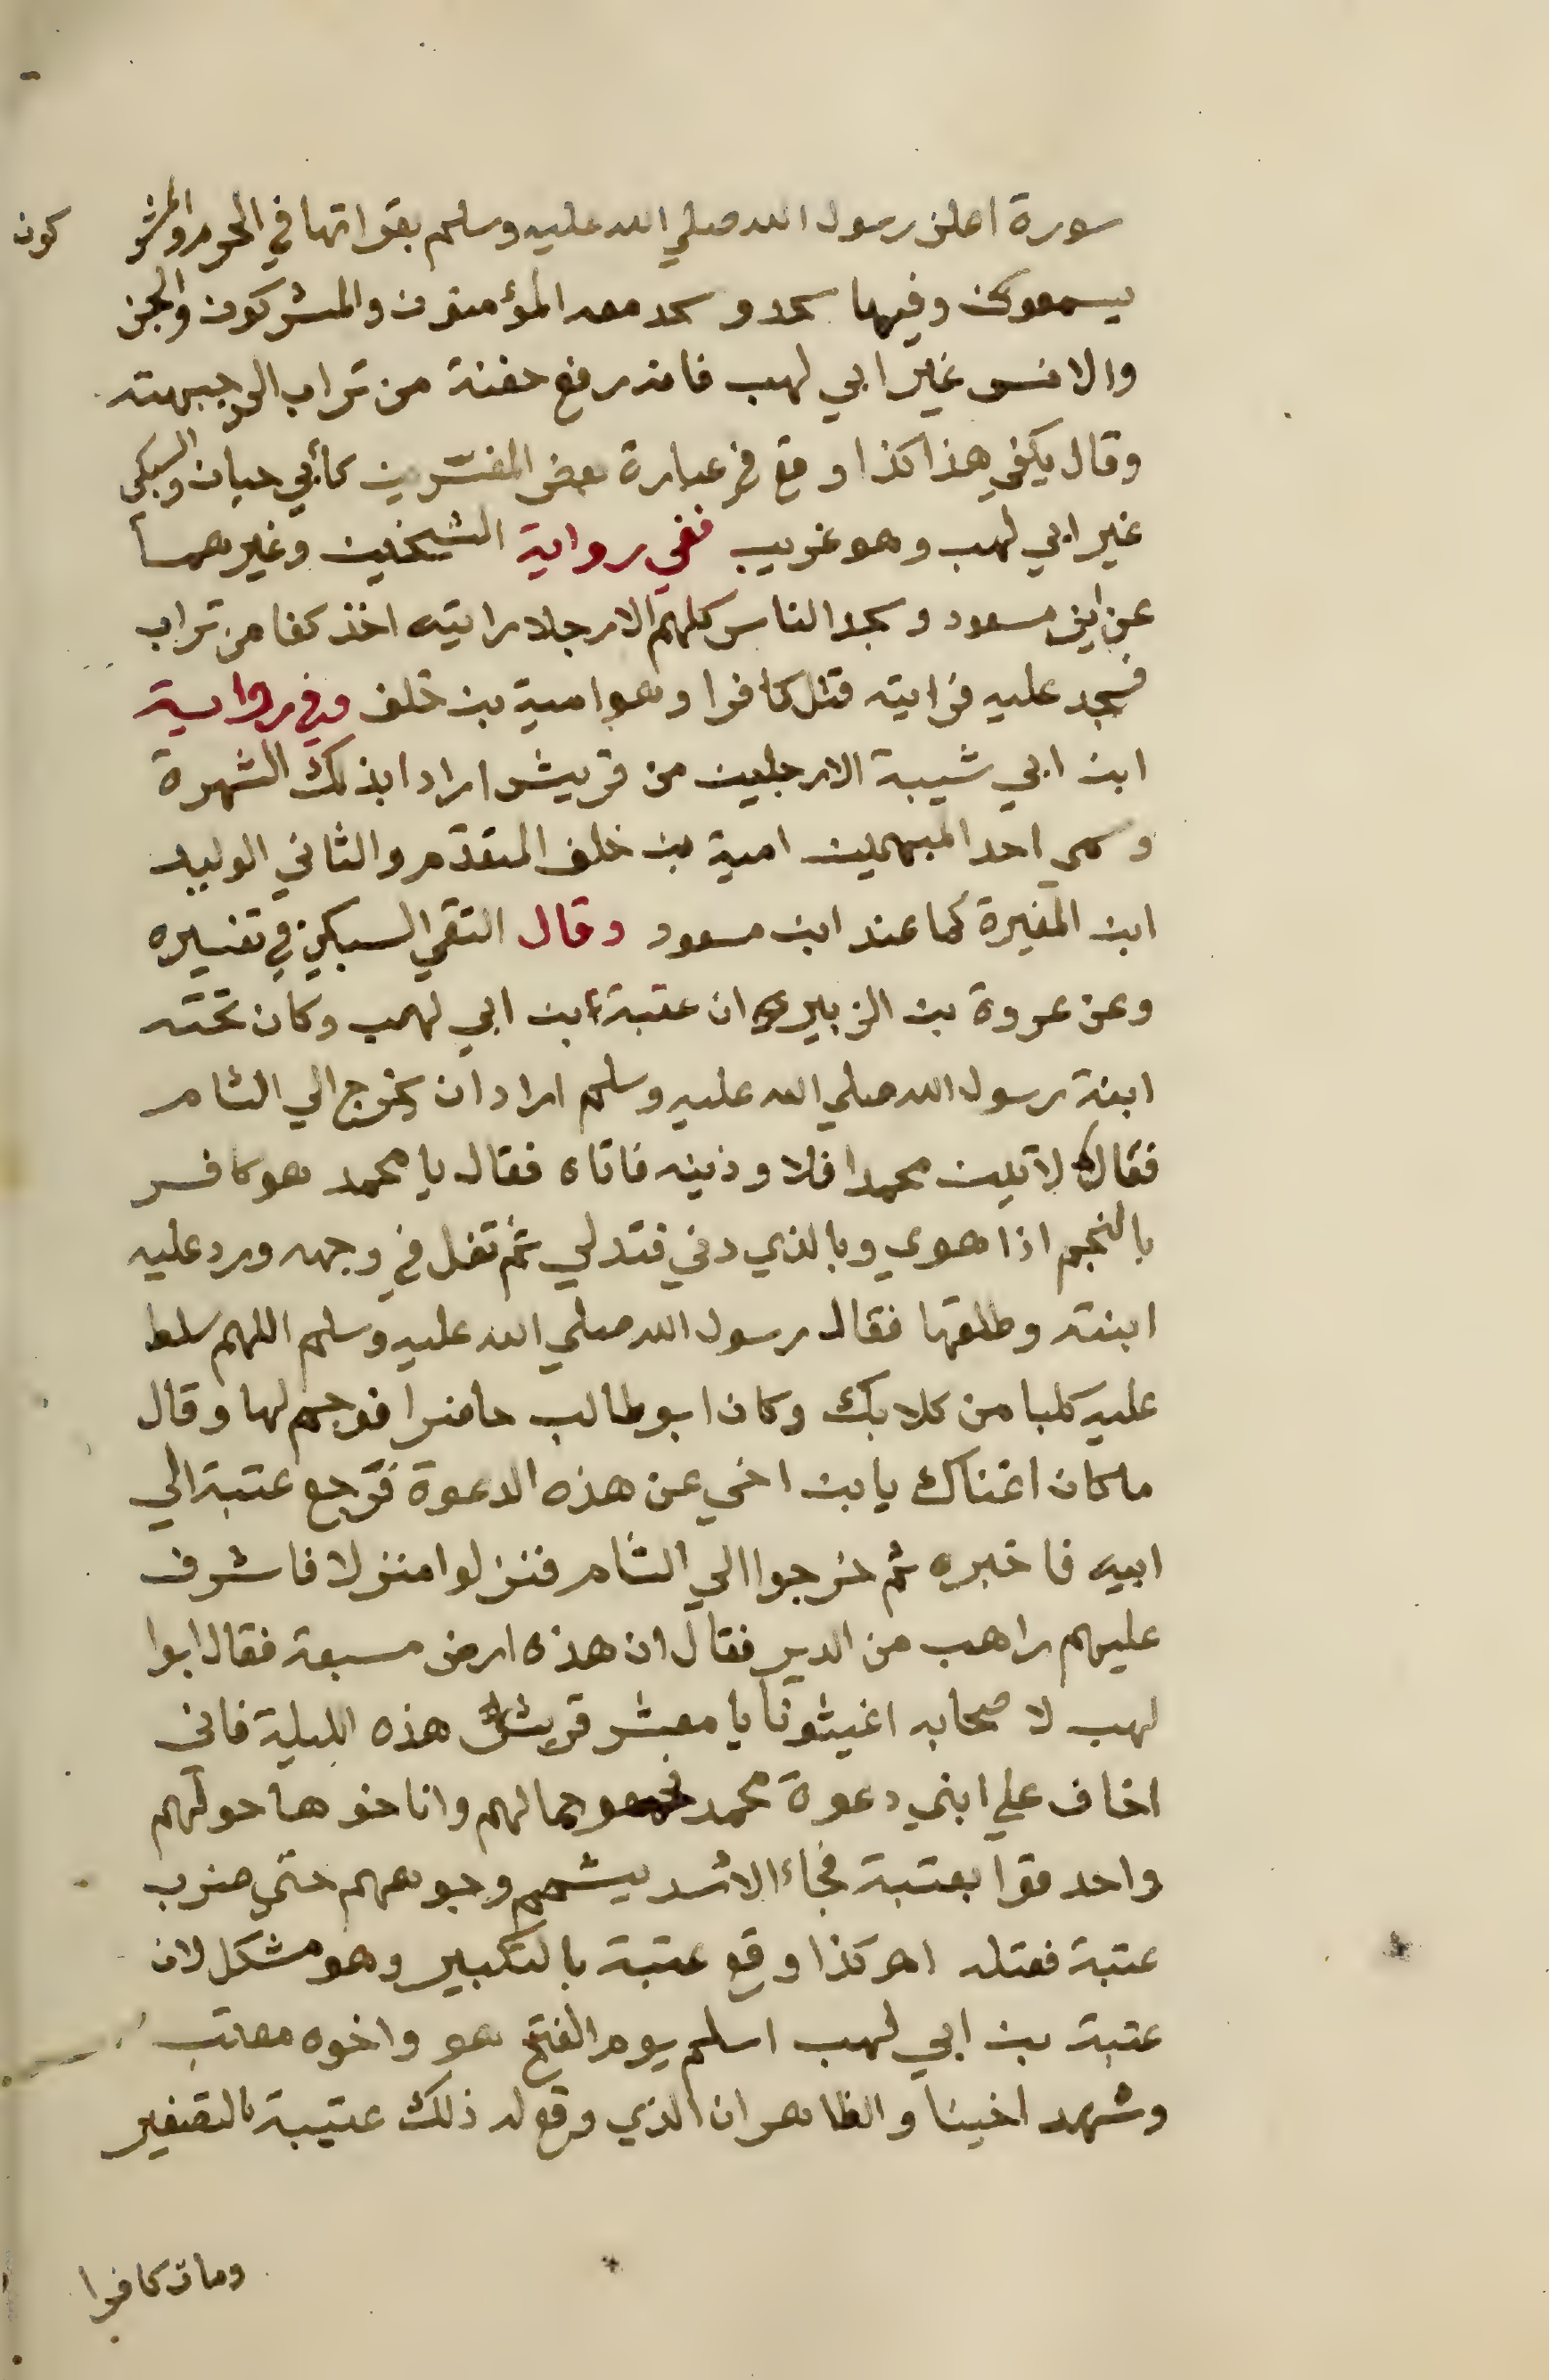 سورة اعلن رسول الله صلي الله عليه وسلم بقراتها في الحرم والمشر كون
يسمعون وفيها سجد وسجد معه المؤمنون والمشركون والجن
والانس غير ابي لهب فانه رفع حفنة من تراب الي جبهته
وقال يكفي هذا كذا وقع في عبارة بعض المفسّرين كأبي حيان والسبكي
غير ابي لهب وهو غريب ففي رواية الشيخين وغيرهما
عن ابن مسعود وسجد الناس كلهم الا رجلا رايته اخذ كفا من تراب
فسجد عليه فرايته قتل كافرا وهو امية بن خلف وفي رواية
ابن ابي شيبة الا رجلين من قريش ارادا بذلك الشهرة
وسمي احد المبهمين امية بن خلف المتقدّم والثاني الوليد
ابن المغيرة كما عند ابن مسعود وقال التقي السبكي في تفسيره
وعن عروة بن الزبير ان عتبة بن ابي لهب وكان تحته
ابنة رسول الله صلي الله عليه وسلم اراد ان يخرج الي الشام
فقال لاتين محمدا فلاوذينه فاتاه فقال يا محمد هو كافر
بالنجم اذا هوي وبالذي دني فتدلي ثم تفل في وجهه ورد عليه
ابنته وطلقها فقال رسول الله صلي الله عليه وسلم اللهم سلط
عليه كلبا من كلابك وكان ابو طالب حاضرا فوجم لها وقال
ما كان اغناك يا بن اخي عن هذه الدعوة فرجع عتبة الي
ابيه فاخبره ثم خرجوا الي الشام فنزلوا منزلا فاشرف
عليهم راهب من الدير فقال ان هذه ارض مسبعة فقال ابوا
لهب لاصحابه اغيثونا يا معشر قريش هذه الليلة فاني
اخاف علي ابني دعوة محمد فجمعو جمالهم واناخوها حولهم
واحدقوا بعتبة فجاء الاسد يشمم وجوههم حتي ضرب
عتبة فقتله اهر كذا وقع عتبة بالتكبير وهو مشكل لان
عتبة بن ابي لهب اسلم يوم الفتح هو واخوه معتب
وشهد احنينا والظاهر ان الذي وقع له ذلك عتيبة بالتصغير
ومات كافرا